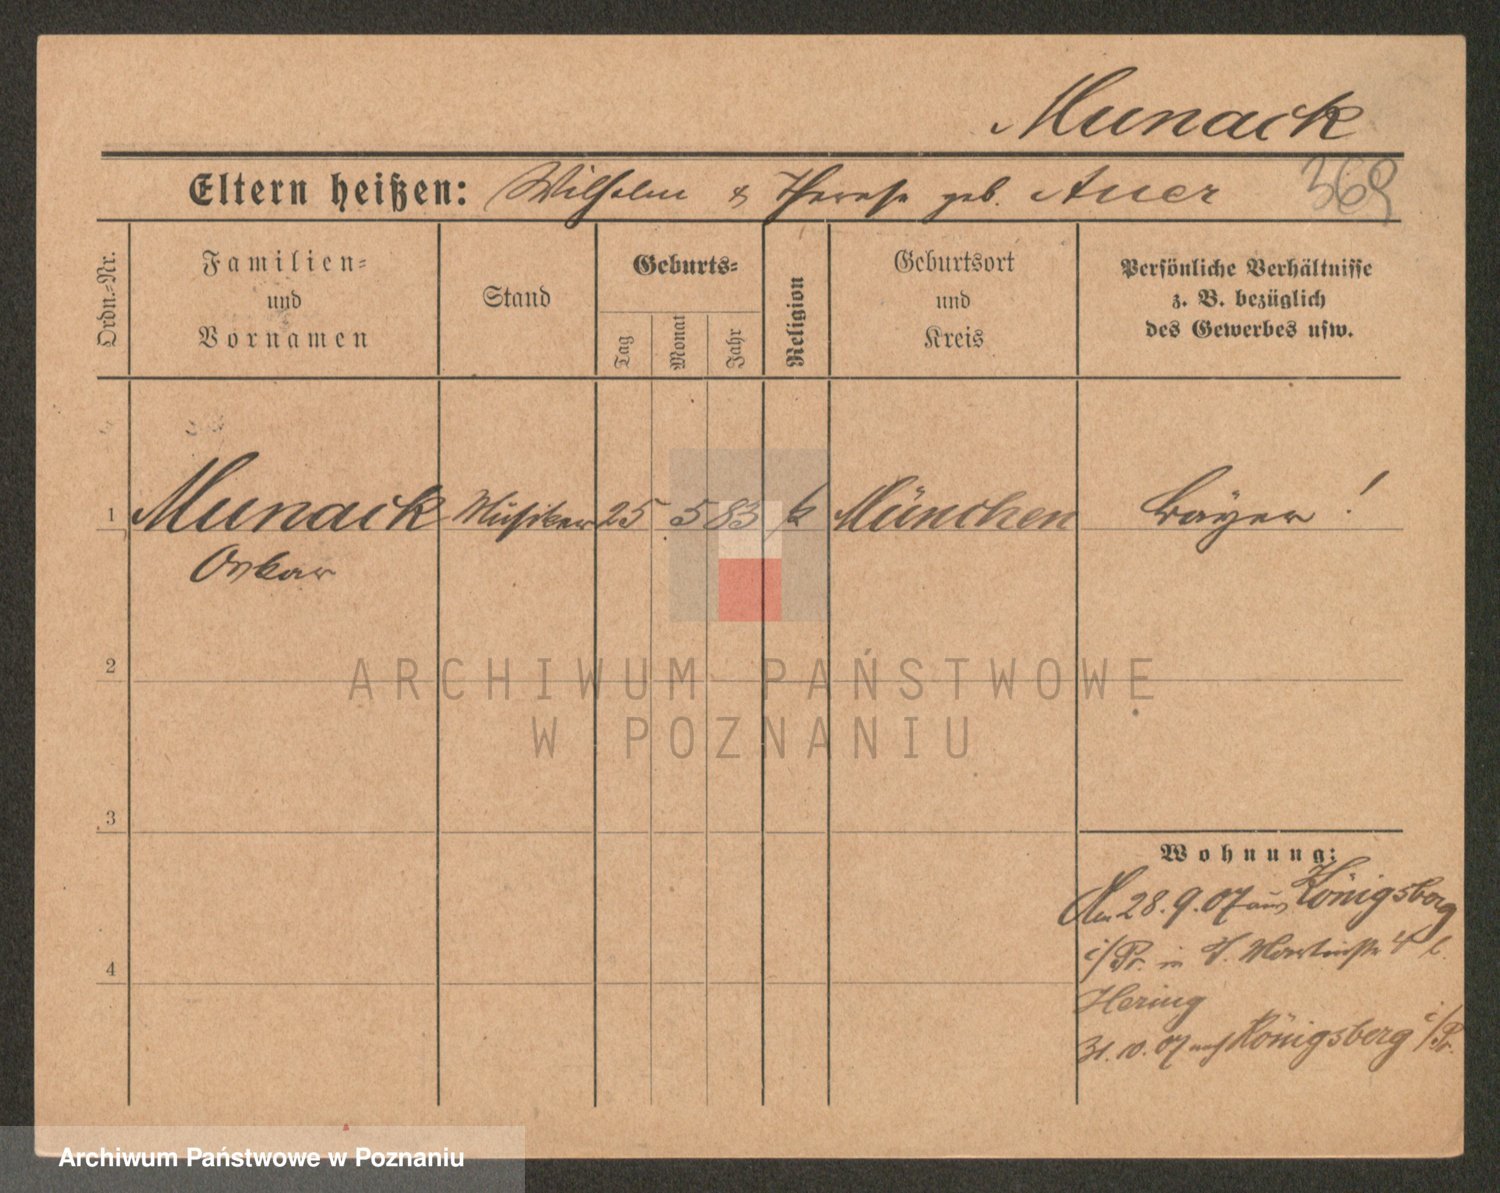 Munack
Eltern heißen: Wilhelm & Therese geb. Auer
369
Ordn.-Nr.
Familien-
und
Vornamen
Stand
Geburts-
Tag
Monat
Jahr
Religion
Geburtsort
und
Kreis
Persönliche Verhältnisse
z. B. bezüglich
des Gewerbes usw.
1 Munack Musiker 25 5 83 k München Bayer!
Oskar
2
3
4
Wohnung:
Am 28.9.07 aus Königsberg
i/Pr. in St. Martinstr 4 b.
Hering
31.10.07 nach Königsberg i/Pr.
ARCHIWUM PAŃSTWOWE
W POZNANIU
Archiwum Państwowe w Poznaniu